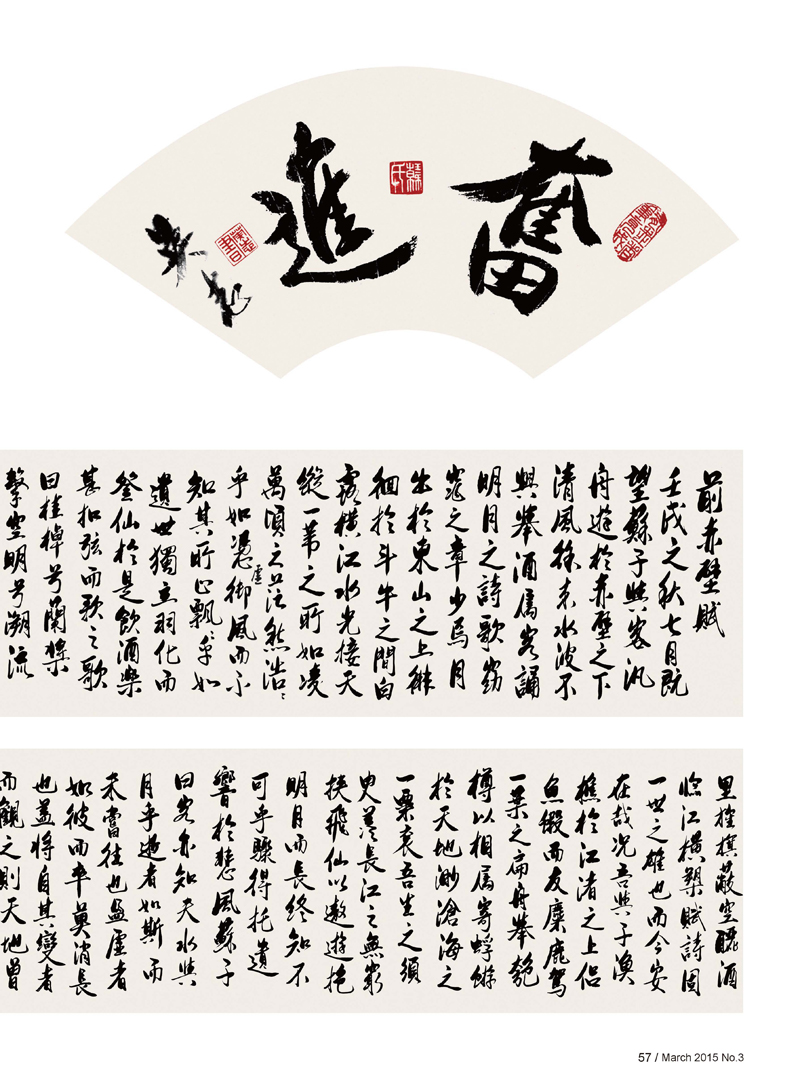 奮進
韓氏
前赤壁賦
壬戌之秋七月既
望蘇子與客汎
舟遊於赤壁之下
清風徐來水波不
興舉酒属客誦
明月之詩歌窈
窕之章少焉月
出於東山之上徘
徊於斗牛之間白
露橫江水光接天
縱一葦之所如凌
萬頃之茫然浩〻
乎如憑虛御風而不
知其所止飄〻乎如
遺世獨立羽化而
登仙於是飲酒樂
甚扣弦而歌之歌
曰桂棹兮蘭槳
擊空明兮溯流
里旌旗蔽空釃酒
臨江橫槊賦詩固
一世之雄也而今安
在哉況吾與子漁
樵於江渚之上侣
魚鰕而友麋鹿駕
一葉之扁舟舉匏
樽以相属寄蜉蝣
於天地渺滄海之
一粟哀吾生之須
臾羨長江之無窮
挾飛仙以遨遊抱
明月而長終知不
可乎驟得托遺
響於悲風蘇子
曰客亦知夫水與
月乎逝者如斯而
未嘗往也盈虛者
如彼而卒莫消長
也蓋將自其變者
而觀之則天地曾
57 / March 2015 No.3